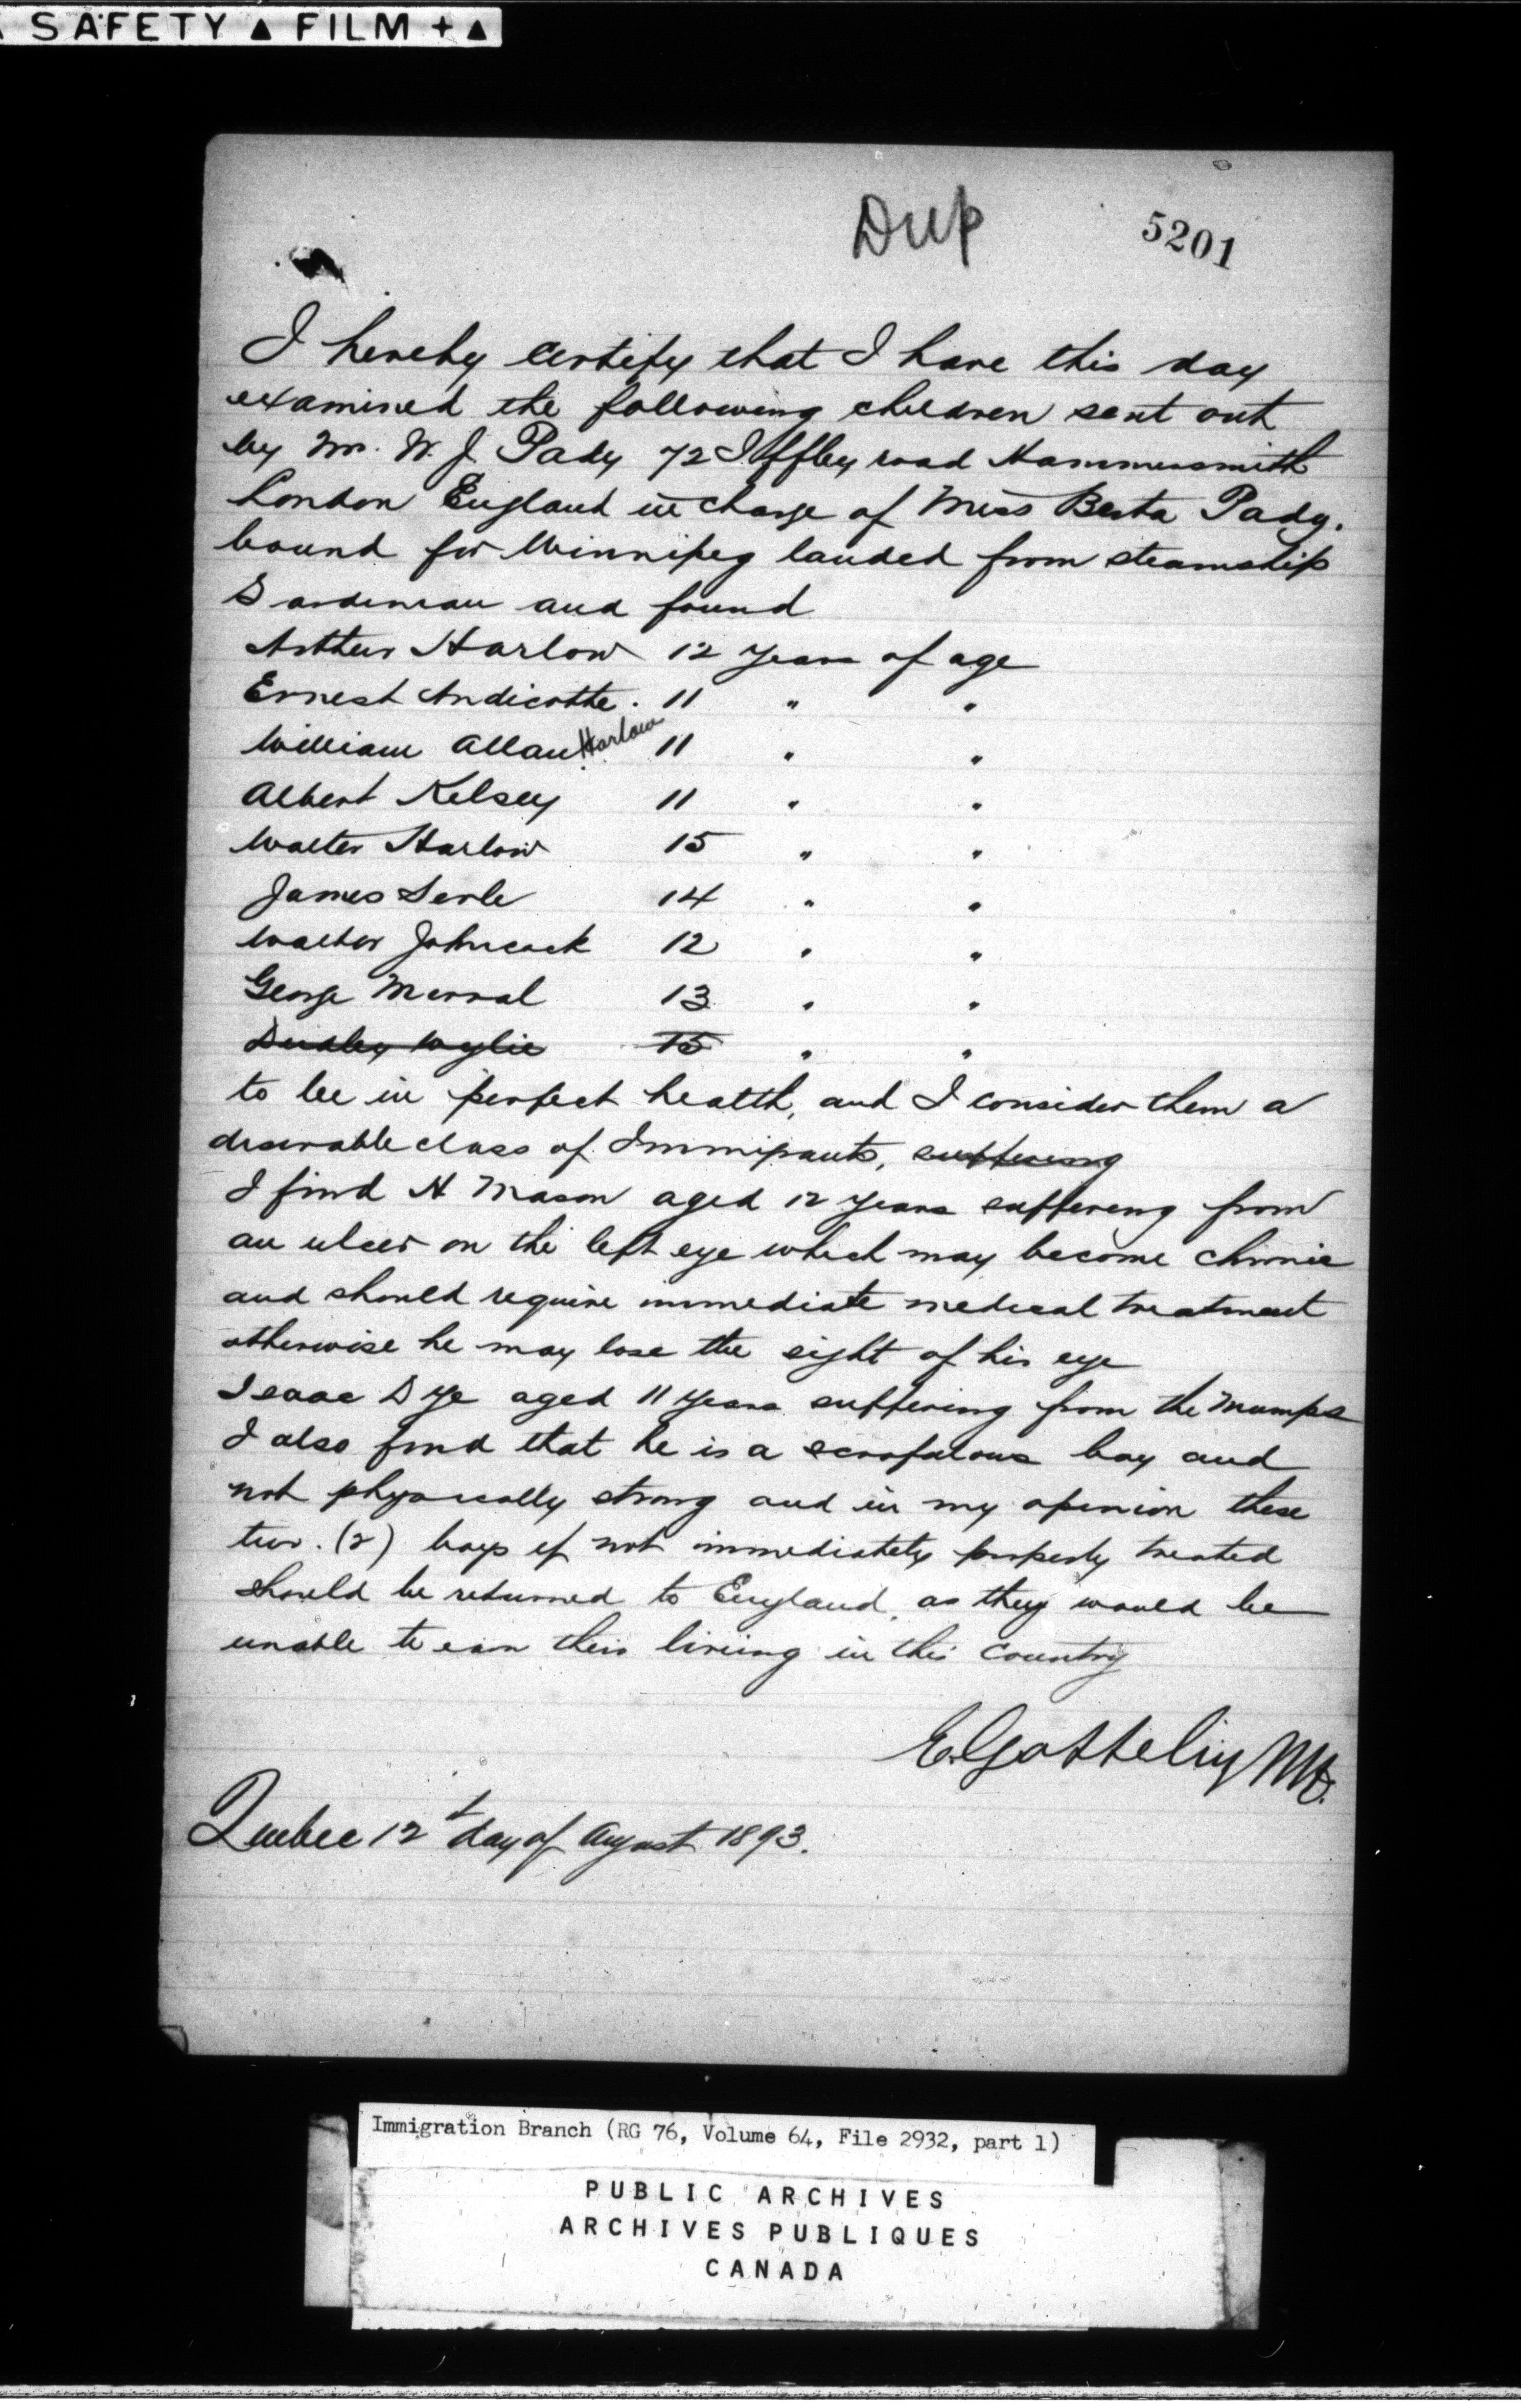 SAFETY ▲ FILM + ▲
Dup
5201
I hereby certify that I have this day
examined the following children sent out
by Mr. W. J. Pady 72 Iffley road Hammersmith
London England in charge of Miss Berta Pady.
bound for Winnipeg landed from steamship
Sardinian and found
Arthur Harlow 12 years of age
Ernest Andicotte. 11 " "
William Allan Harlow 11 " "
Albert Kelsey 11 " "
Walter Harlow 15 " "
James Serle 14 " "
Walter Johncock 12 " "
George Merral 13 " "
Dudley Wylie 15 " "
to be in perfect health, and I consider them a
desirable class of Immigrants, suffering
I find H Mason aged 12 years suffering from
an ulcer on the left eye which may become chronic
and should require immediate medical treatment
otherwise he may lose the sight of his eye
Isaac Dye aged 11 years suffering from the mumps
I also find that he is a scrofulous boy and
not physically strong and in my opinion these
two. (2) boys if not immediately properly treated
should be returned to England, as they would be
unable to earn their living in this country
E. MD.
Quebec 12t day of August 1893.
Immigration Branch (RG 76, Volume 64, File 2932, part 1)
PUBLIC ARCHIVES
ARCHIVES PUBLIQUES
CANADA